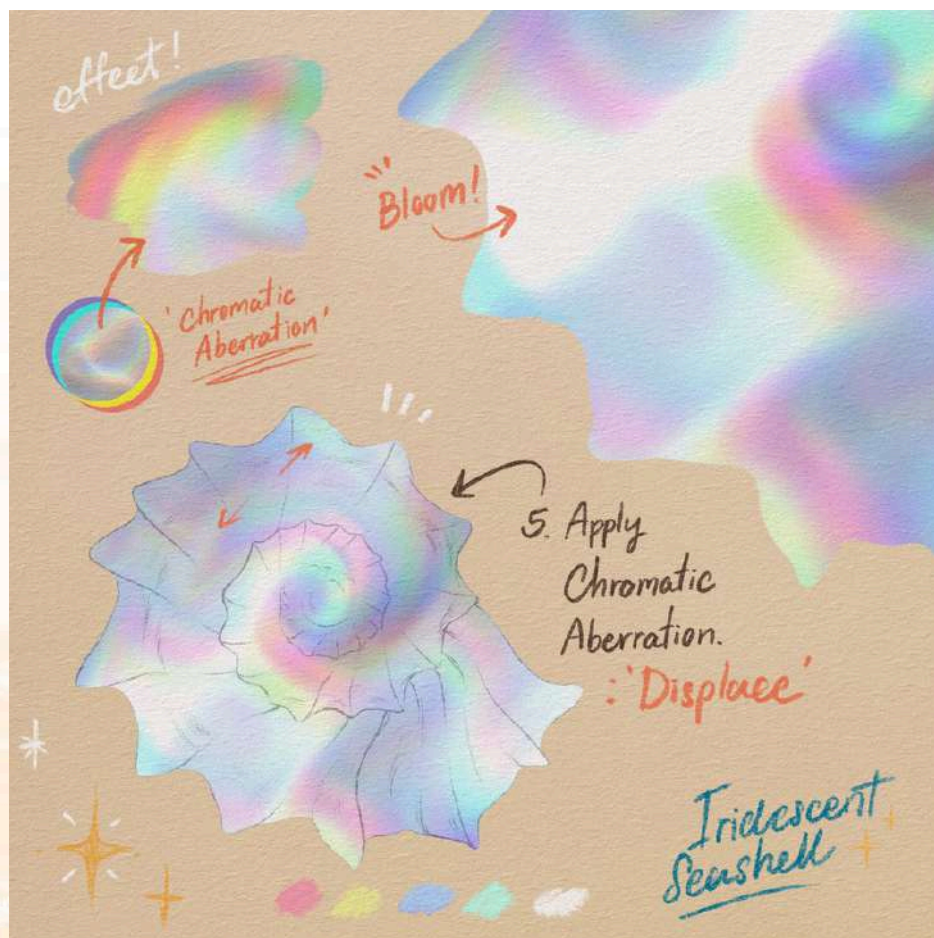 effect!
"Bloom!
'Chromatic
Aberration'
5. Apply
Chromatic
Aberration.
:'Displace'
Iridescent
Seashell